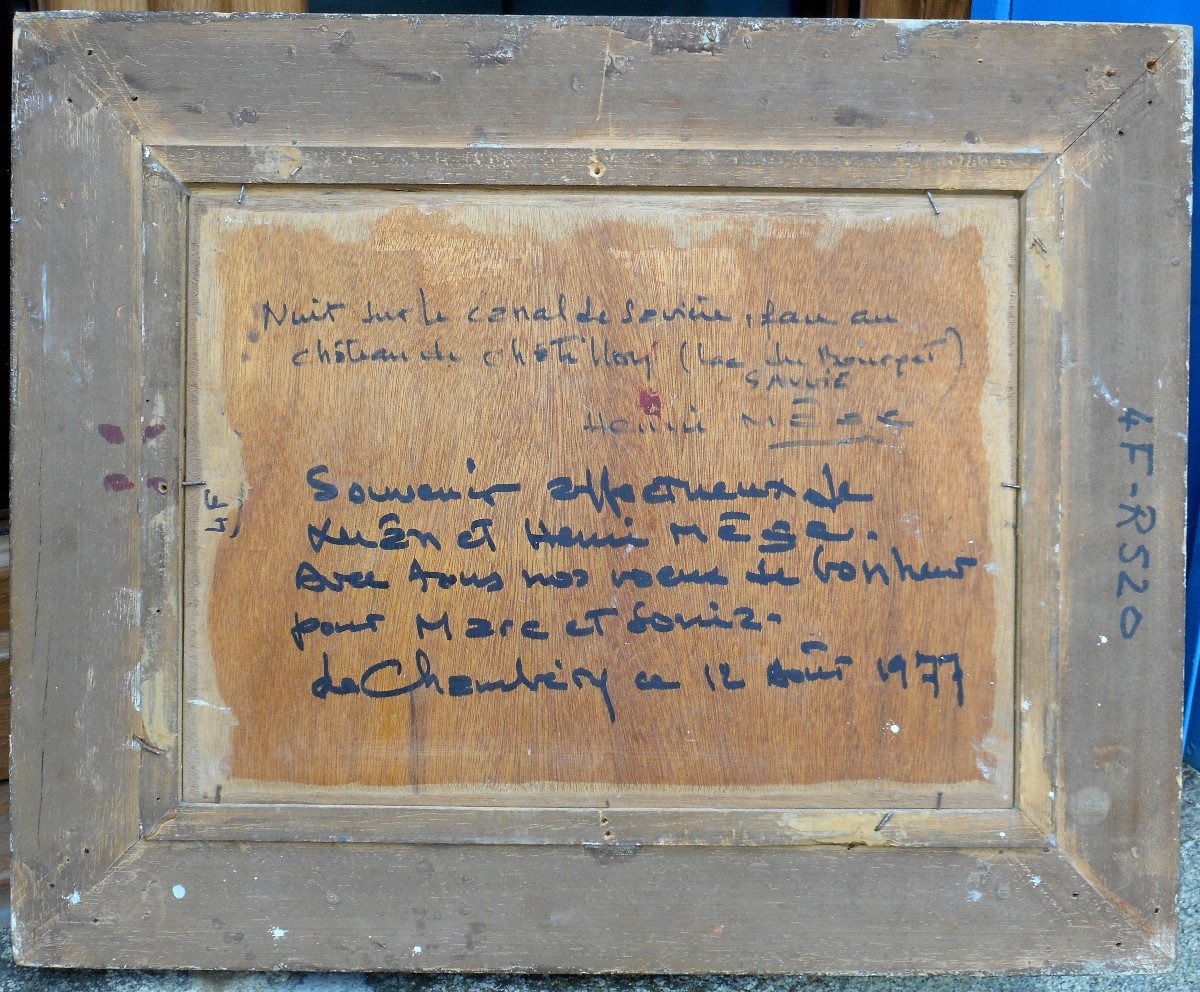 Nuit sur le canal de Savière, face au
château de châtillon (lac du Bourget)
SAVOIE
Henri MÈGE
Souvenir affectueux de
Xuân et Henri MÈGE.
Avec tous nos voeux de bonheur
pour Marc et Sonia.
de Chambéry ce 12 Août 1977
4F
4F-R520